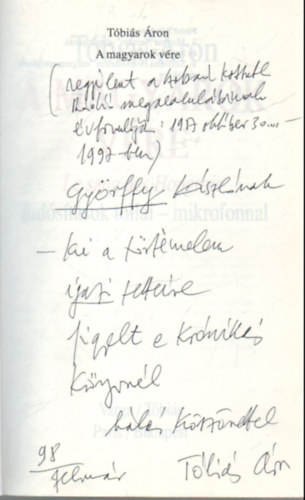 Tóbiás Áron
A magyarok vére
(megjelent a Szabad Kossuth
Rádió megalakulásának
évfordulója: 1997 október 30.... –
1997-ben)
Györffy Lászlónak
– ki a történelem
igazi tetteire
figelt e krónikás
Könyvnél
hálás köszönettel
98
február Tóbiás Áron
– mikrofonnal